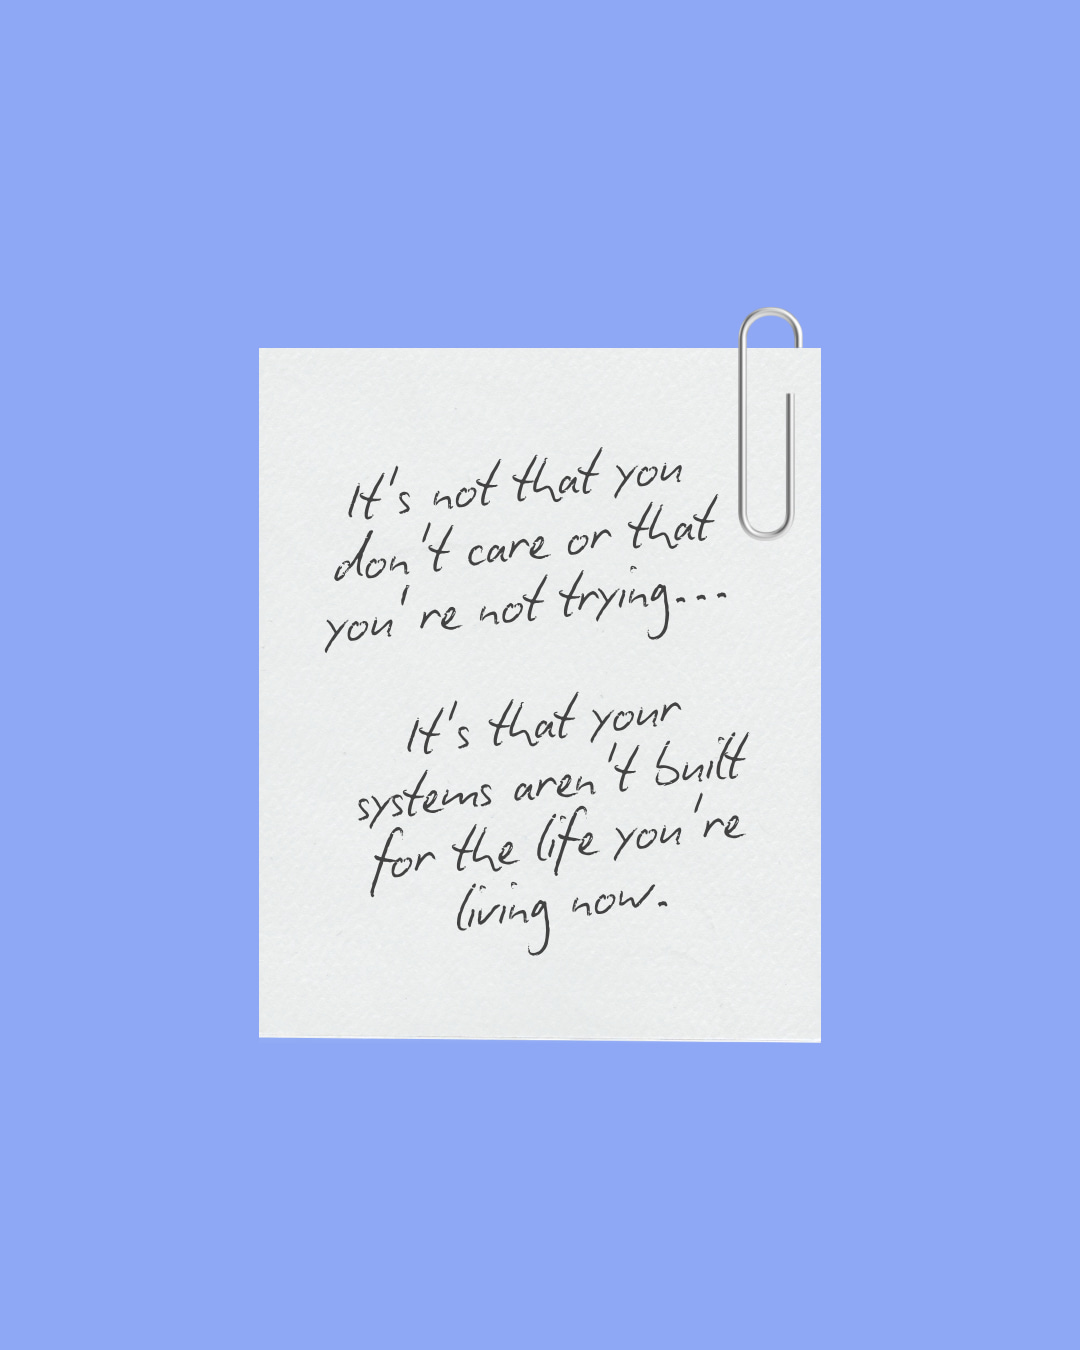 It's not that you
don't care or that
you're not trying...
It's that your
systems aren't built
for the life you're
living now.